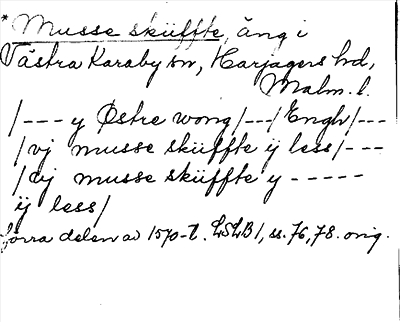 * Musse skiffte, äng i
Västra Karaby sn, Harjagers hd,
Malm. l.
/--- y Østre wong/---/Engh/---
/vj musse skiffte ij less/---
/vj musse skiffte y -----
ij less/
förra delen av 1570-t. LSLB I, ss. 76, 78. orig.